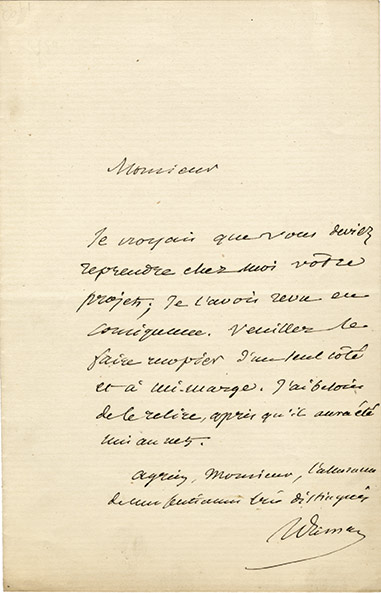 Monsieur
Je croyais que vous deviez
reprendre chez moi votre
projet; Je l'avois revu en
conséquence. Veuillez le
faire recopier d'un seul côté
et à mi-marge. J'ai besoin
de le relire, après qu'il aura été
mis au net.
Agréez, Monsieur, l'assurance
de mes sentiments très distingués